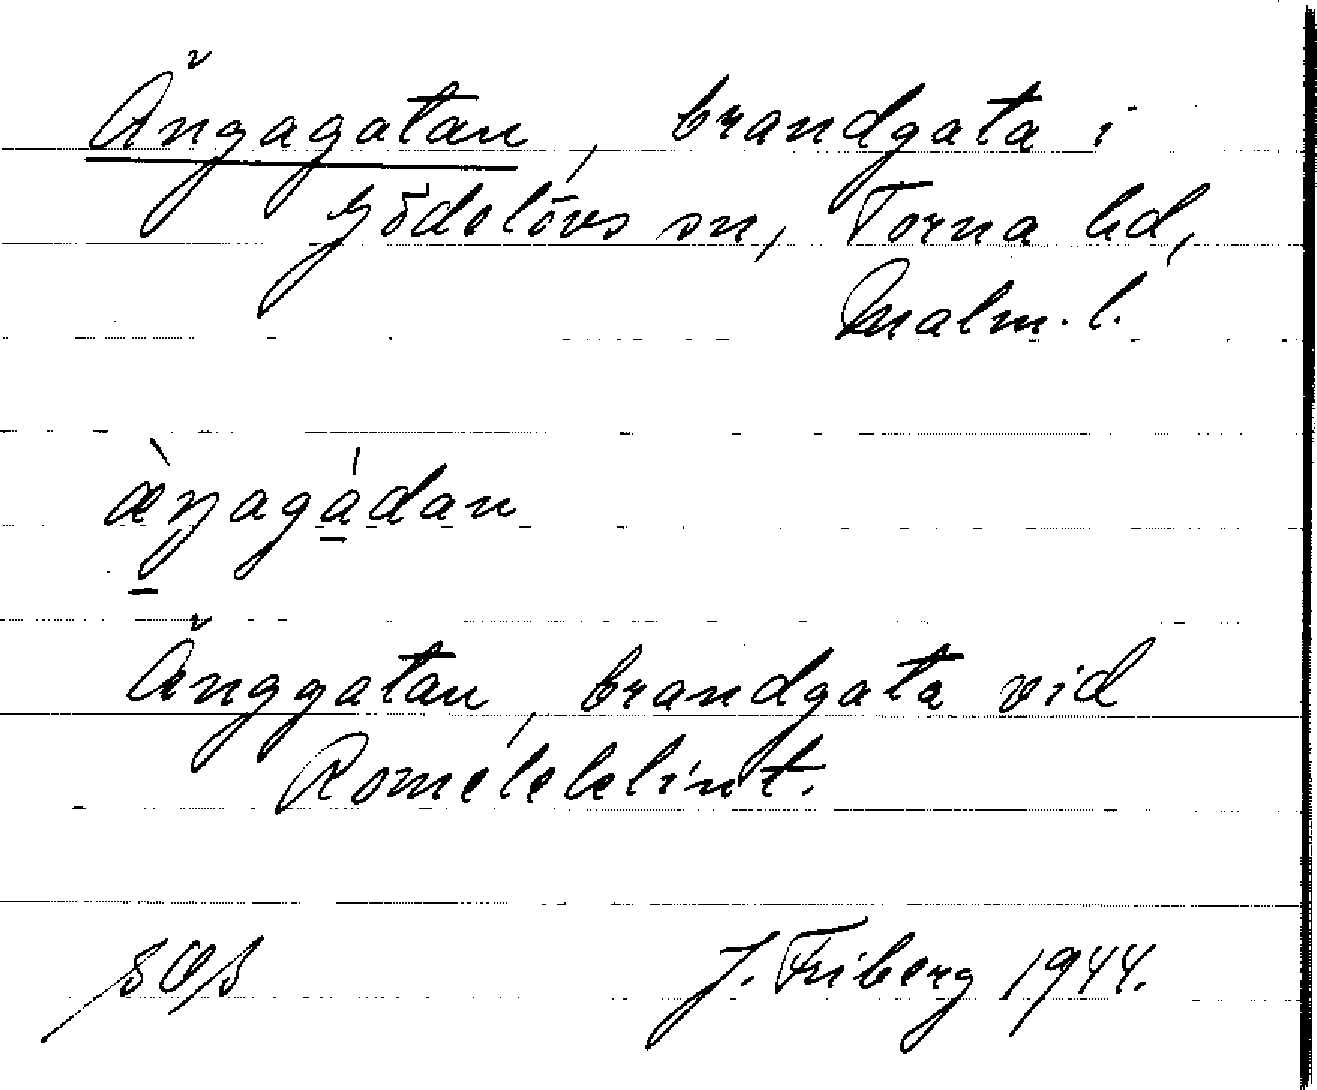 Ängagatan, brandgata i
Gödelövs sn, Torna hd,
Malm. l.
æ̀ŋagádan
Änggatan, brandgata vid
Romeleklint.
SOS J. Friberg 1944.